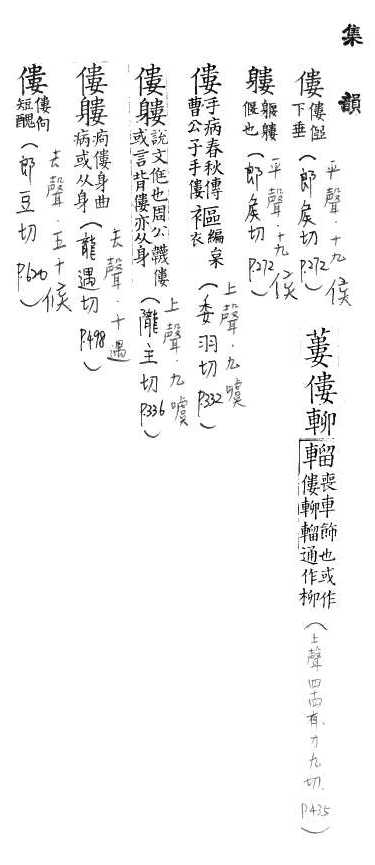 集韻
僂 僂下垂(郎矦切 P.272) 平聲.十九侯
蔞僂䡟䡜 喪車飾也或作僂䡟䡜通作柳(上聲四十四有.力九切.P435)
軁 軁也(郎矦切 P.272) 平聲.十九侯
僂 手病春秋傳曹公子手僂 褔 編枲衣(委羽切 P.332) 上聲.九噳
僂軁 說文尪也周公韈僂或言背僂亦从身(隴主切 P336) 上聲.九噳
僂軁 痀僂身曲病或从身(龍遇切 P.498) 去聲.十遇
僂 僂佝短醜(郎豆切 P.620) 去聲.五十候